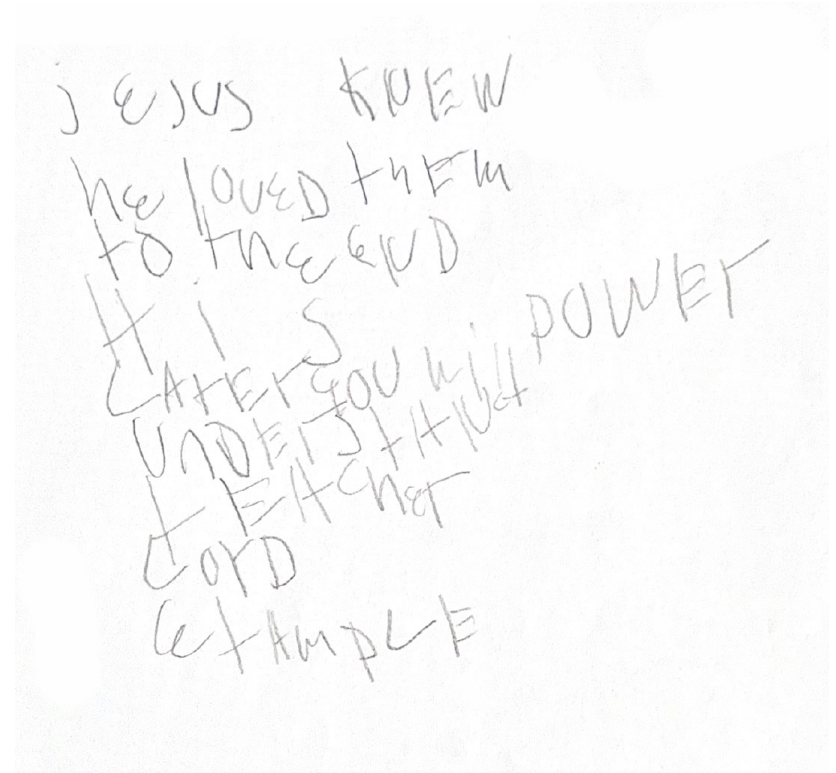 jesus KNEW
he loved thEm
to the end
His POWEr
LAtEr you will
UnDErstAnd
tEAcher
LorD
exAmpLE